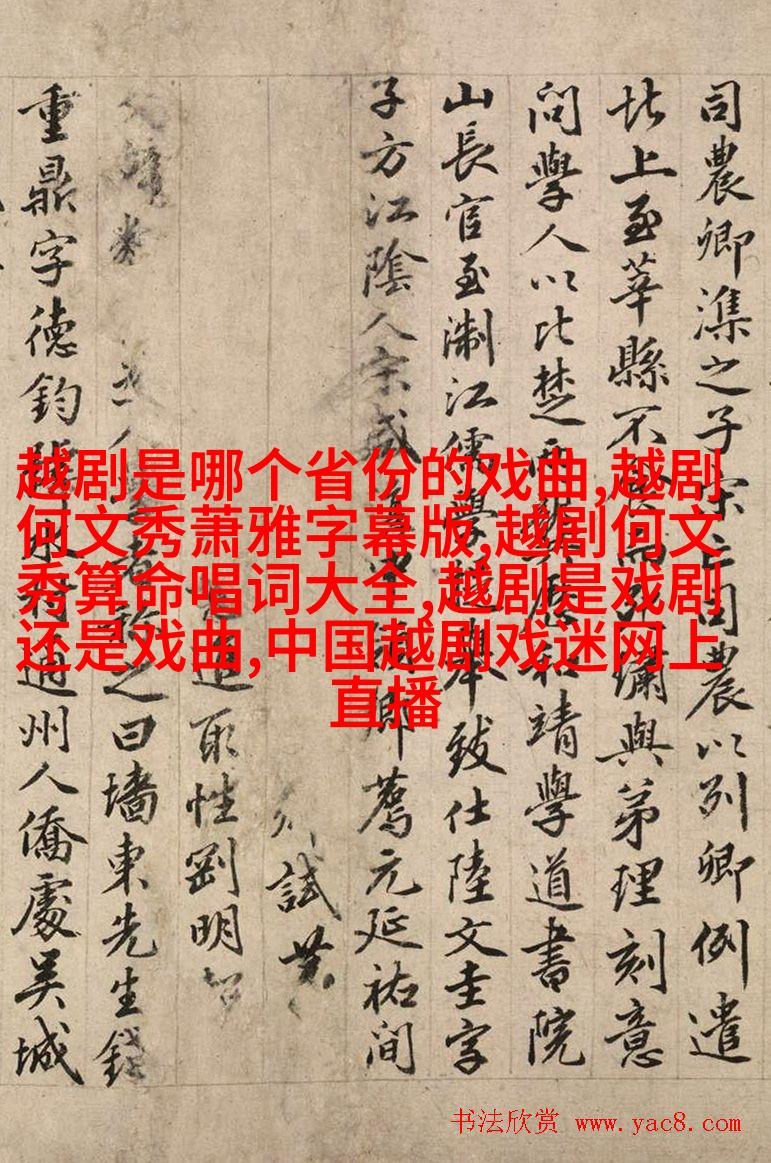 司農卿之子宋亡司農以列卿例遣
北上至莘縣不與弟理刻意
問學人以比楚兩龔歷和靖學道書院
山長官至淛江儒學提舉致仕陸文圭字
子方江陰人宋咸鄉薦元延祐間
試
取性剛明
人之曰墻東先生錢
重鼎字德鈞通州人僑處吳城
越剧是哪个省份的戏曲,越剧
何文秀萧雅字幕版,越剧何文
秀算命唱词大全,越剧是戏剧
还是戏曲,中国越剧戏迷网上
直播
书法欣赏 www.yac8.com